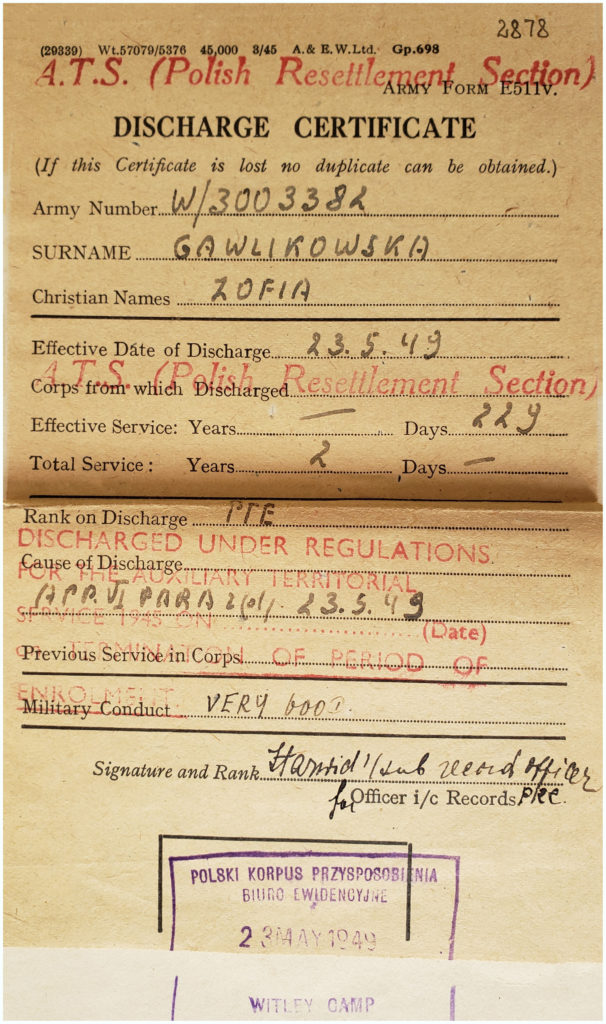 2878
(29339) Wt.57079/5376 45,000 3/45 A.& E.W.Ltd. Gp.698
A.T.S. (Polish Resettlement Section)
ARMY FORM E511V.
DISCHARGE CERTIFICATE
(If this Certificate is lost no duplicate can be obtained.)
Army Number W/3003382
SURNAME GAWLIKOWSKA
Christian Names ZOFIA
Effective Date of Discharge 23.5.49
A.T.S. (Polish Resettlement Section)
Corps from which Discharged
Effective Service: Years — Days 229
Total Service: Years 2 Days —
Rank on Discharge PTE
DISCHARGED UNDER REGULATIONS
Cause of Discharge
FOR THE AUXILIARY TERRITORIAL
APP. VI PARA 2(d). 23.5.49
SERVICE 1945 ON (Date)
Previous Service in Corps
on TERMINATION OF PERIOD OF
ENROLMENT
Military Conduct VERY GOOD.
Signature and Rank sub record officer
for Officer i/c Records PRC.
POLSKI KORPUS PRZYSPOSOBIENIA
BIURO EWIDENCYJNE
23 MAY 1949
WITLEY CAMP